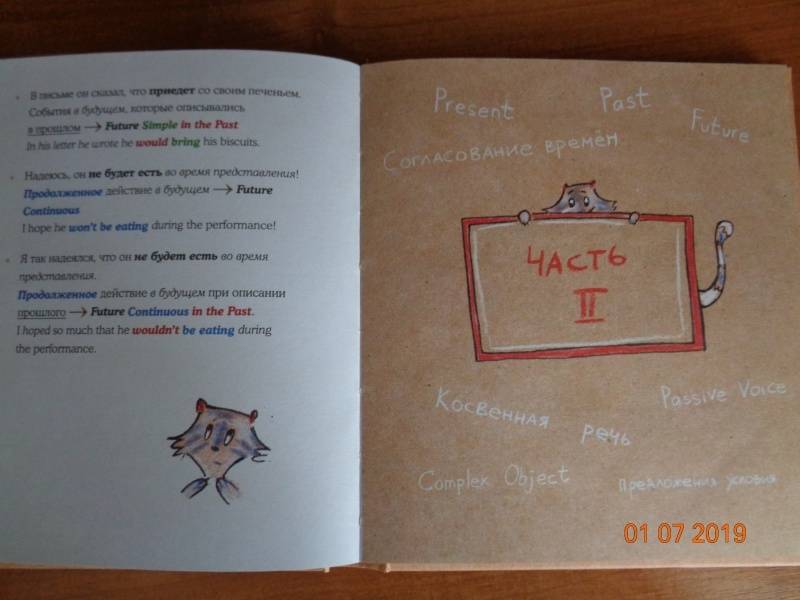 В письме он сказал, что приедет со своим печеньем.
События в будущем, которые описывались
в прошлом → Future Simple in the Past
In his letter he wrote he would bring his biscuits.
Надеюсь, он не будет есть во время представления!
Продолженное действие в будущем → Future
Continuous
I hope he won't be eating during the performance!
Я так надеялся, что он не будет есть во время
представления.
Продолженное действие в будущем при описании
прошлого → Future Continuous in the Past.
I hoped so much that he wouldn't be eating during
the performance.
Present Past Future
Согласование времён
ЧАСТЬ
II
Косвенная речь
Passive Voice
Complex Object
предложения условия
01 07 2019